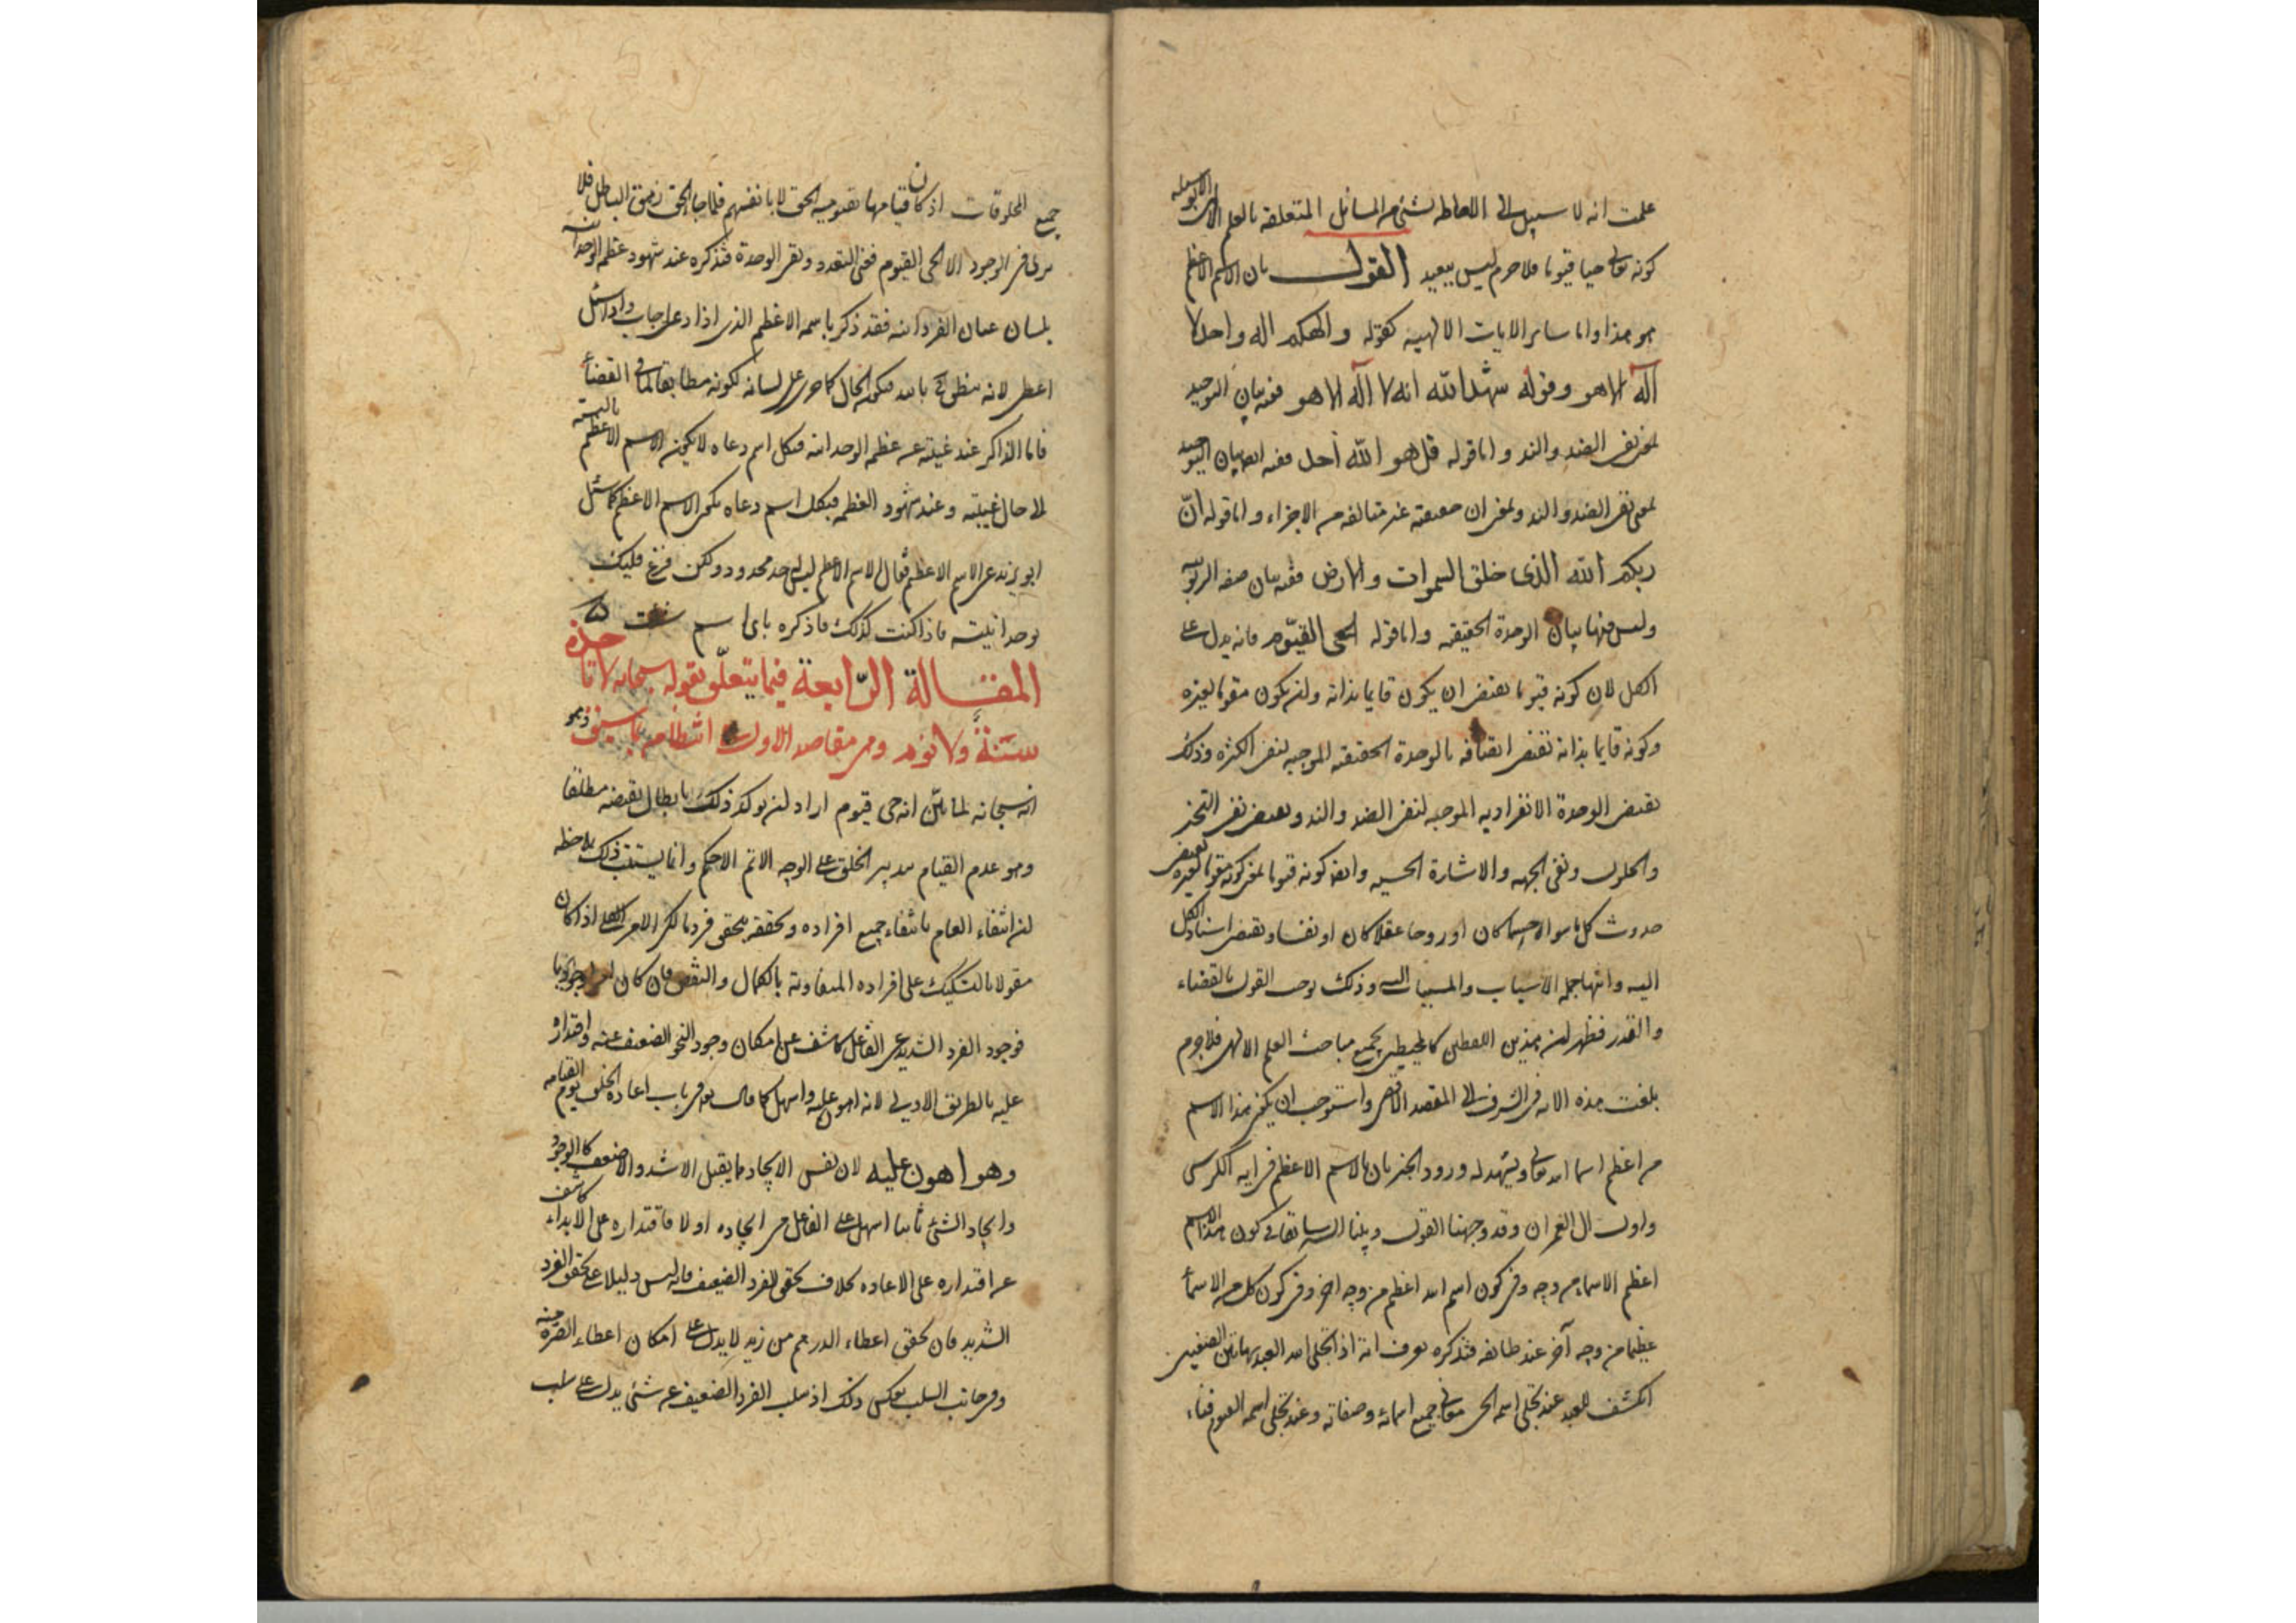 علمت انه لا سبيل الى الاحاطه بشئ من المسائل المتعلقه بالعلم الا بواسطه
كونه تعالى حيا قيوما فلا جرم ليس ببعيد القول بان الاسم الاعظم
هو هذا واما ساير الايات الالهيه كقوله والهكم اله واحد لا
اله الا هو وقوله شهد الله انه لا اله الا هو ففيه بيان التوحيد
بمعنى نفى الضد والند واما قوله قل هو الله احد ففيه ايضا بيان التوحيد
بمعنى نفى الضد والند وبمعنى ان حقيقته غير متالفه من الاجزاء واما قوله انّ
ربكم الله الذى خلق السموات والارض ففيه بيان صفه الربوبيه
وليس فيها بيان الوحدة الحقيقيه واما قوله الحى القيّوم فانه يدل على
الكل لان كونه قيوما يقتضى ان يكون قايما بذاته وان يكون مقوما لغيره
وكونه قايما بذاته يقتضى اتصافه بالوحدة الحقيقيه الموجبه لنفى الكثره وذلك
يقتضى الوحدة الانفراديه الموجبه لنفى الضد والند ويقتضى نفى التحيز
والحلول ونفى الجهه والاشارة الحسيه وايضا كونه قيوما بمعنى كونه مقوما لغيره يقتضى
حدوث كل ما سواه جسما كان او روحا عقلا كان او نفسا ويقتضى استناد الكل
اليه وانتها جمله الاسباب والمسببات اليه وذلك يوجب القول بالقضاء
والقدر فظهر ان هذين اللفظين كالمحيطين بجميع مباحث العلم الالهى فلا جرم
بلغت هذه الايه فى الشرف الى المقصد الاقصى واستوجب ان يكون هذا الاسم
من اعظم اسما الله تعالى ويشهد له ورود الخبر بان الاسم الاعظم فى ايه الكرسى
واول ال عمران وقد وجهنا القول وبينا السر سابقا فى كون هذا الاسم
اعظم الاسماء من وجه وفى كون اسم الله اعظم من وجه اخر وفى كون كل من الاسماء
عظيما من وجه آخر عند طايفه فتذكره تعرف انه اذا تجلى الله لعبد بهاتين الصفتين
انكشف للعبد عند تجلى اسمه الحى معانى جميع اسمائه وصفاته وعند تجلى اسمه القيوم فناء
جميع المخلوقات اذ كان قيامها بقيوميه الحق لا بانفسهم فلما جاء الحق زهق الباطل فلا
يرى فى الوجود الا الحى القيوم فيفنى التعدد وبقى الوحدة فتذكره عند شهود عظمه الوحدانيه
بلسان عيان الفردانيه فقد ذكر باسمه الاعظم الذى اذا دعى به اجاب واذا سئل
اعطى لانه ينطق بالله فيكون الحال كما جرى على لسانه لكونه مطابقا لما فى القضاء
فاما الذاكر عند غيبته عن عظمه الوحدانيه فبكل اسم دعاه لا يكون الاسم الاعظم بالنسبه
الى حال غيبته وعند شهود العظمه فبكل اسم دعاه يكون الاسم الاعظم كما سئل
ابو يزيد عن الاسم الاعظم فقال الاسم الاعظم ليس له حد محدود ولكن فرغ قلبك
لوحدانيته فاذا كنت كذلك فاذكره باى اسم شئت
المقالة الرّابعة فيما يتعلّق بقوله سبحانه لا تاخذه
سنةٌ ولا نوم وفى مقاصد الاول فى انتظامه بما سبق وهو
انه سبحانه لما بيّن انه حى قيوم اراد ان يوكد ذلك بابطال نقيضه مطلقا
وهو عدم القيام بتدبير الخلق على الوجه الاتم الاحكم وانما يستتب ذلك بملاحظه
ان انتفاء العام بانتفاء جميع افراده وتحققه بتحقق فرد ما لكن الامر الكلى اذا كان
مقولا بالتشكيك على افراده المتفاوته بالكمال والنقص فان كان امرا وجوديا
فوجود الفرد الشديد عن الفاعل كاشف عن امكان وجود النحو الضعيف عنه واقتداره
عليه بالطريق الاولى لانه اهون عليه واسهل كما قال تعالى فى باب اعاده الخلق يوم القيامه
وهو اهون عليه لان نفس الايجاد مما يقبل الاشد والاضعف كالوجود
وايجاد الشئ ثانيا اسهل على الفاعل من ايجاده اولا فاقتداره على الابداء كاشف
عن اقتداره على الاعاده بخلاف تحقق الفرد الضعيف فانه ليس دليلا على تحقق الفرد
الشديد فان تحقق اعطاء الدرهم من زيد لا يدل على امكان اعطاء الصره منه
وفى جانب السلب بعكس ذلك اذ سلب الفرد الضعيف عن شئ يدل على سلب